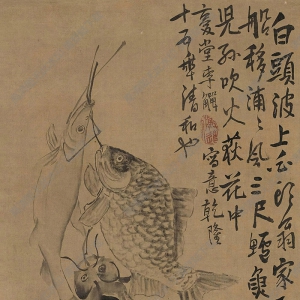 白頭波上白頭翁家
船移浦〻風三尺鱸魚
兒孫吹火荻花中
復堂李鱓寫意乾隆
十年清和